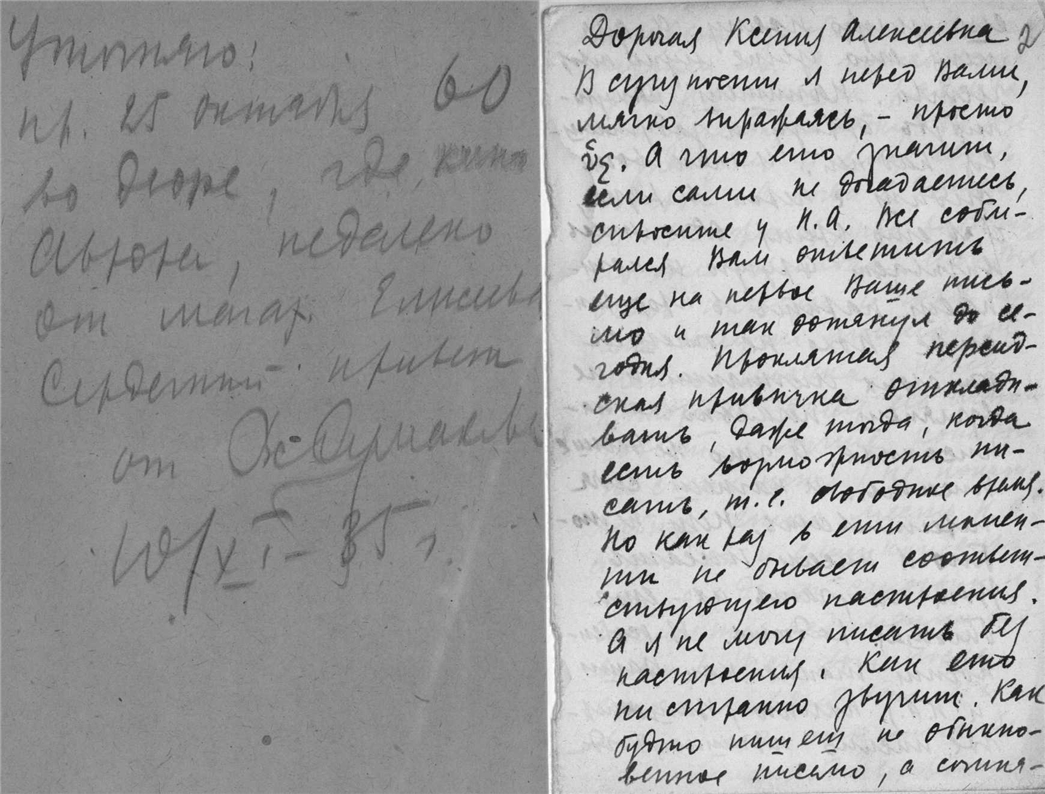 Уточняю:
пр. 25 октября 60
во дворе, где кино
Аврора, недалеко
от магаз. Елисеева
Сердечный привет
от
10/XI – 35 г.
Дорогая Ксения Алексеевна 2
В сущности я перед Вами,
мягко выражаясь, – просто
. А что ето значит,
если сами не догадаетесь,
спросите у Н.А. Все соби-
рался Вам ответить
еще на первое Ваше пись-
мо и так дотянул до се-
годня. Проклятая персид-
ская привычка отклады-
вать, даже тогда, когда
есть возможность пи-
сать, т.е. свободное время.
Но как раз в ети момен-
ты не бывает соответ-
ствующего настроения.
А я не могу писать без
настроения. Как ето
ни странно звучит. Как
будто пишет не обыкно-
венное письмо, а сочине-